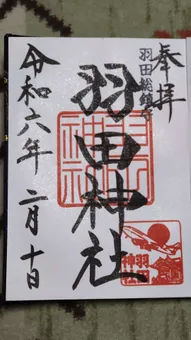 奉拝
羽田総鎮守
羽田神社
令和六年 二月 十日
羽田
神社